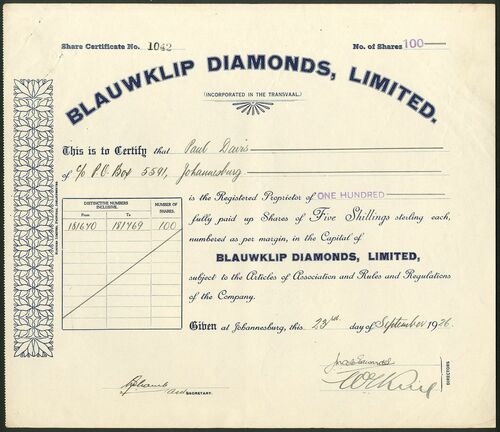 Share Certificate No. 1042
No. of Shares 100
BLAUWKLIP DIAMONDS, LIMITED.
(INCORPORATED IN THE TRANSVAAL.)
This is to Certify that Paul Davis
of c/o P.O. Box 5591, Johannesburg
is the Registered Proprietor of ONE HUNDRED
fully paid up Shares of Five Shillings sterling each,
numbered as per margin, in the Capital of
BLAUWKLIP DIAMONDS, LIMITED,
subject to the Articles of Association and Rules and Regulations
of the Company.
DISTINCTIVE NUMBERS INCLUSIVE.
NUMBER OF SHARES.
From To
181670 181769 100
Given at Johannesburg, this 23rd day of September 1926.
SECRETARY.
DIRECTORS